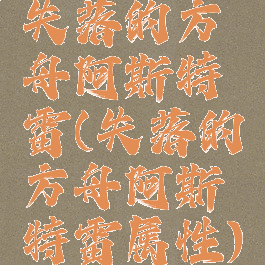 失落的方
舟阿斯特
雷(失落的
方舟阿斯
特雷属性)